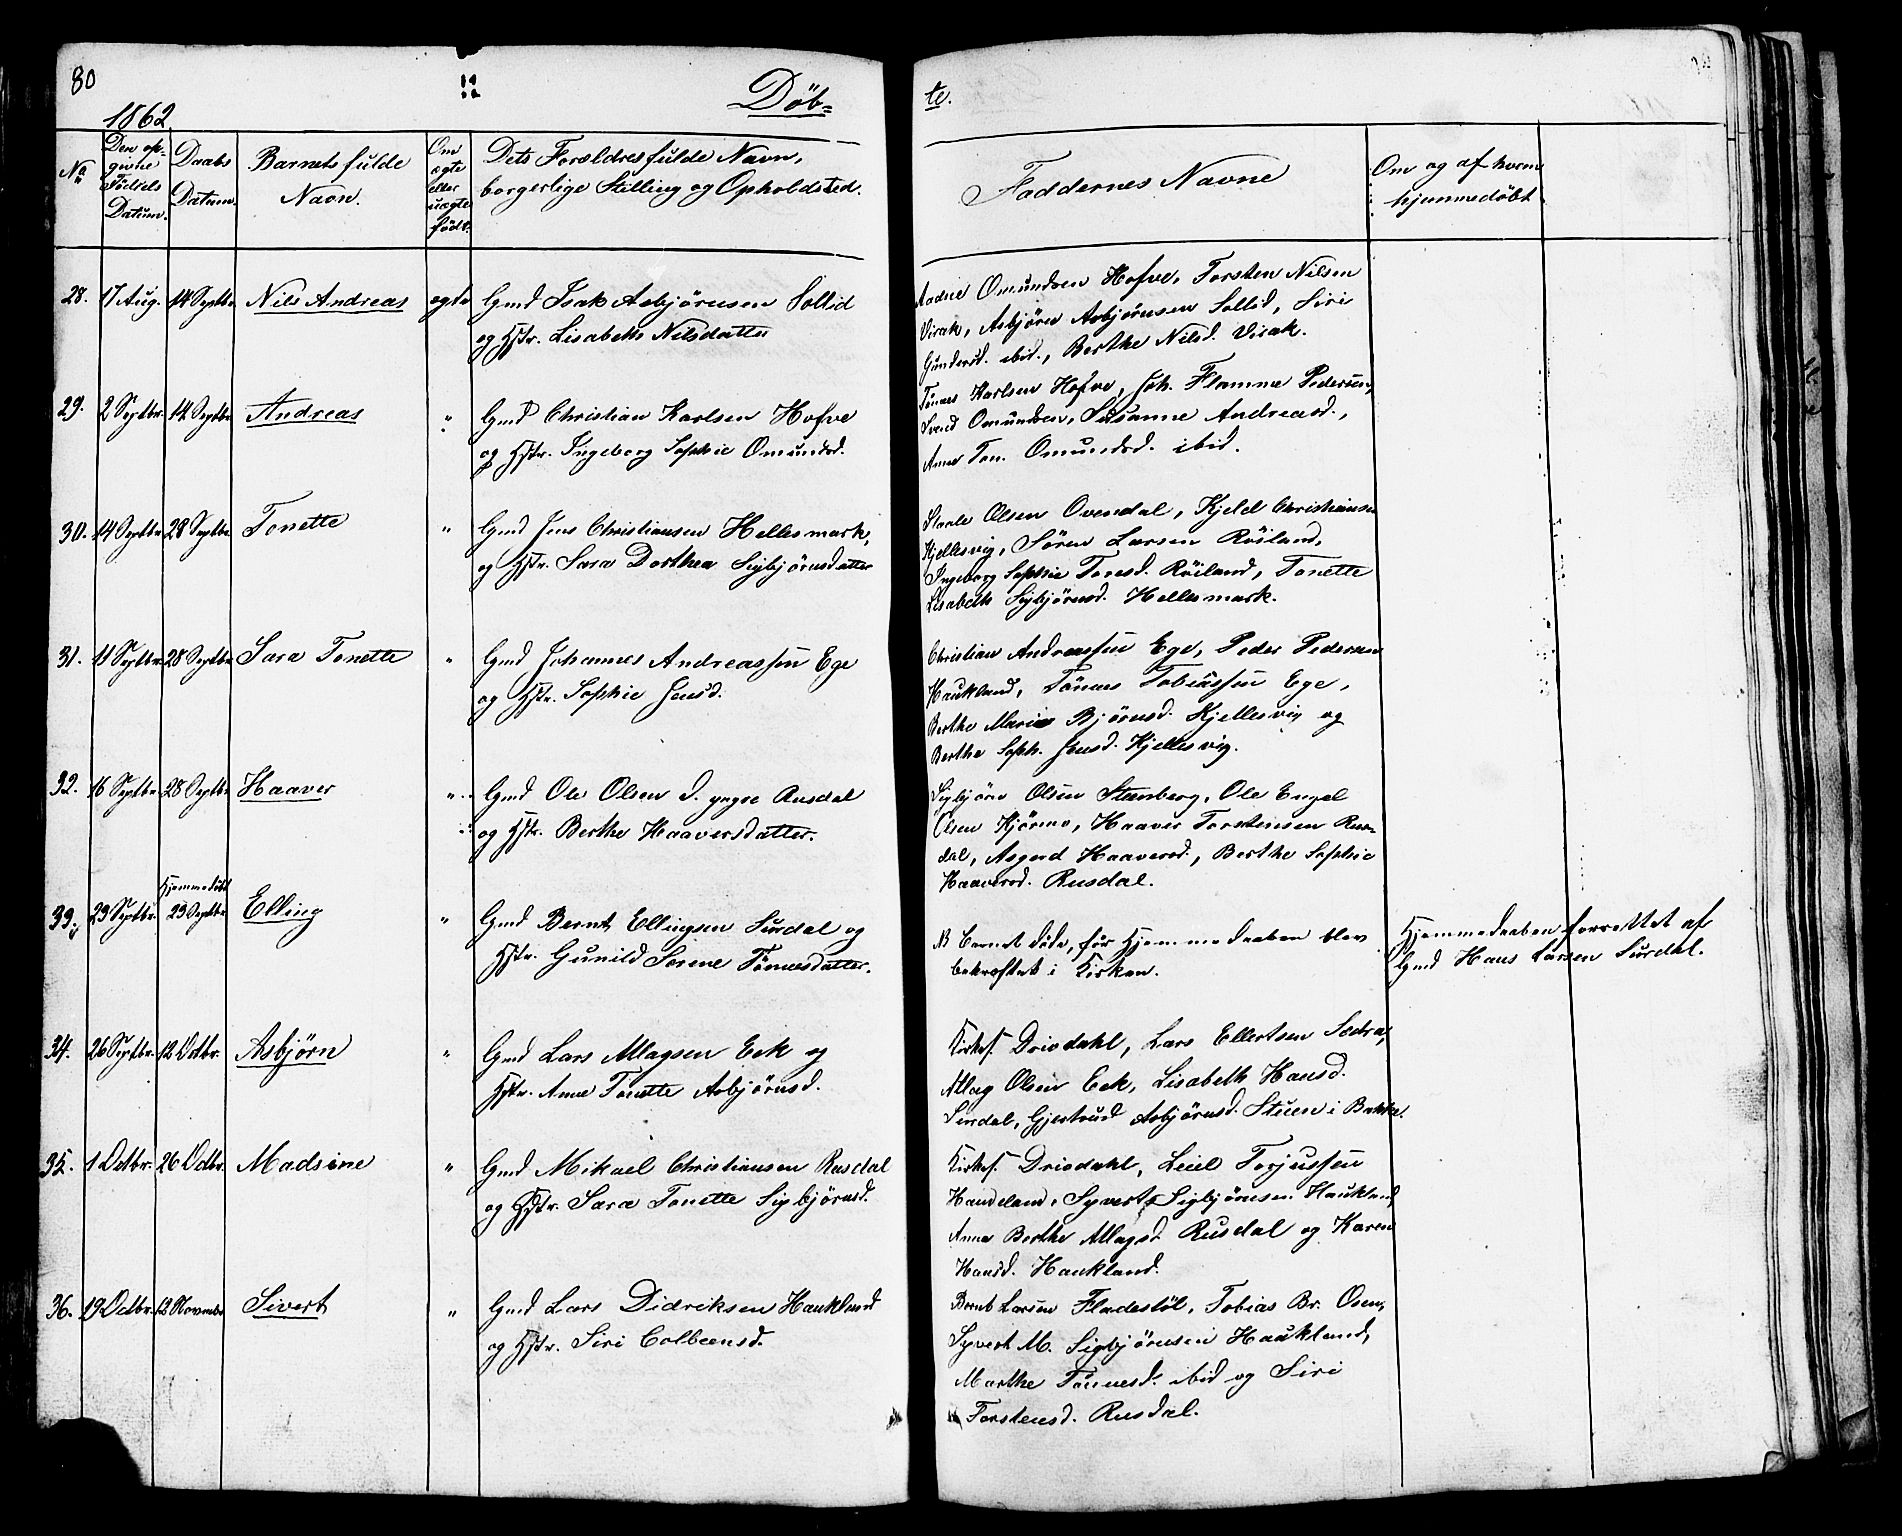 80
1862
Döb=
te.
No
Den op-
givne
Födsels
Datum.
Daabs
Datum.
Barnets fulde
Navn.
Om
ægte
eller
uægte
født.
Dets Forældres fulde Navn,
borgerlige Stilling og Opholdsted.
Faddernes Navne
Om og af hvem
hjemmedøbt
28. 17 Aug. 14 Septbr. Nils Andreas ægte Gmd Isak Asbjörnsen Sollid
og Hstr. Lisabeth Nilsdatter
Aadne Omundsen Hofve, Torsten Nilsen
Virak, Asbjörn Asbjörnsen Sollid, Siri
Gundersd. ibid., Berthe Nilsd. Virak.
29. 2 Septbr. 14 Septbr. Andreas " Gmd Christian Karlsen Hofve
og Hstr. Ingeborg Sophie Omundsd.
Tönnes Karlsen Hofve, Joh. Flamme Pedersen,
Svend Omundsen, Susanne Andreasd.,
Anne Ton. Omundsd. ibid.
30. 14 Septbr. 28 Septbr. Tonette " Gmd Jens Christiansen Hellesmark,
og Hstr. Sara Dorthea Sigbjörnsdatter
Staale Olsen Ovendal, Kjeld Christiansen
Kjellesvig, Sören Larsen Röiland,
Ingeborg Sophie Toresd. Röiland, Tonette
Lisabeth Sigbjörnsd. Hellesmark.
31. 11 Septbr. 28 Septbr. Sara Tonette " Gmd Johannes Andreassen Ege
og Hstr. Sophie Jensd.
Christian Andreassen Ege, Peder Pedersen
Haukland, Tönnes Tobiassen Ege,
Berthe Marie Björnsd. Kjellesvig og
Berthe Soph. Jensd. Kjellesvig.
32. 16 Septbr. 28 Septbr. Haaver " Gmd Ole Olsen d. yngre Rusdal
og Hstr. Berthe Haaversdatter.
Sigbjörn Olsen Steenberg, Ole Engel
Olsen Hjörmo, Haaver Torstensen Rus-
dal, Asgerd Haaversd., Berthe Sophie
Haaversd. Rusdal.
33. 23 Septbr. Hjemmedöbt
23 Septbr. Elling " Gmd Bernt Ellingsen Surdal og
Hstr. Gunild Serine Tönnesdatter.
NB Barnet döde, för Hjemmedaaben blev
bekræftet i Kirken.
Hjemmedaaben forrettet af
Gmd Hans Larsen Surdal.
34. 26 Septbr. 12 Octbr. Asbjörn " Gmd Lars Atlagsen Eek og
Hstr. Anne Tonette Asbjörnsd.
Kirkes. Drivdahl, Lars Ellertsen Sædra,
Atlag Olsen Eek, Lisabeth Hansd.
Surdal, Gjertrud Asbjörnsd. Stuen i Bakke.
35. 1 Octbr. 26 Octbr. Madsine " Gmd Mikael Christiansen Rusdal
og Hstr. Sara Tonette Sigbjörnsd.
Kirkes. Drivdahl, Leiel Torjussen
Haudeland, Syvert Sigbjörnsen Haukland,
Anne Berthe Atlagsd. Rusdal og Karen
Hansd. Haukland.
36. 19 Octbr. 2 Novembr. Sivert " Gmd Lars Didriksen Haukland
og Hstr. Siri Colbeensd.
Bernt Larsen Fladestöl, Tobias Br. Osen,
Syvert M. Sigbjörnsen Haukland,
Marthe Tönnesd. ibid og Siri
Torstensd. Rusdal.